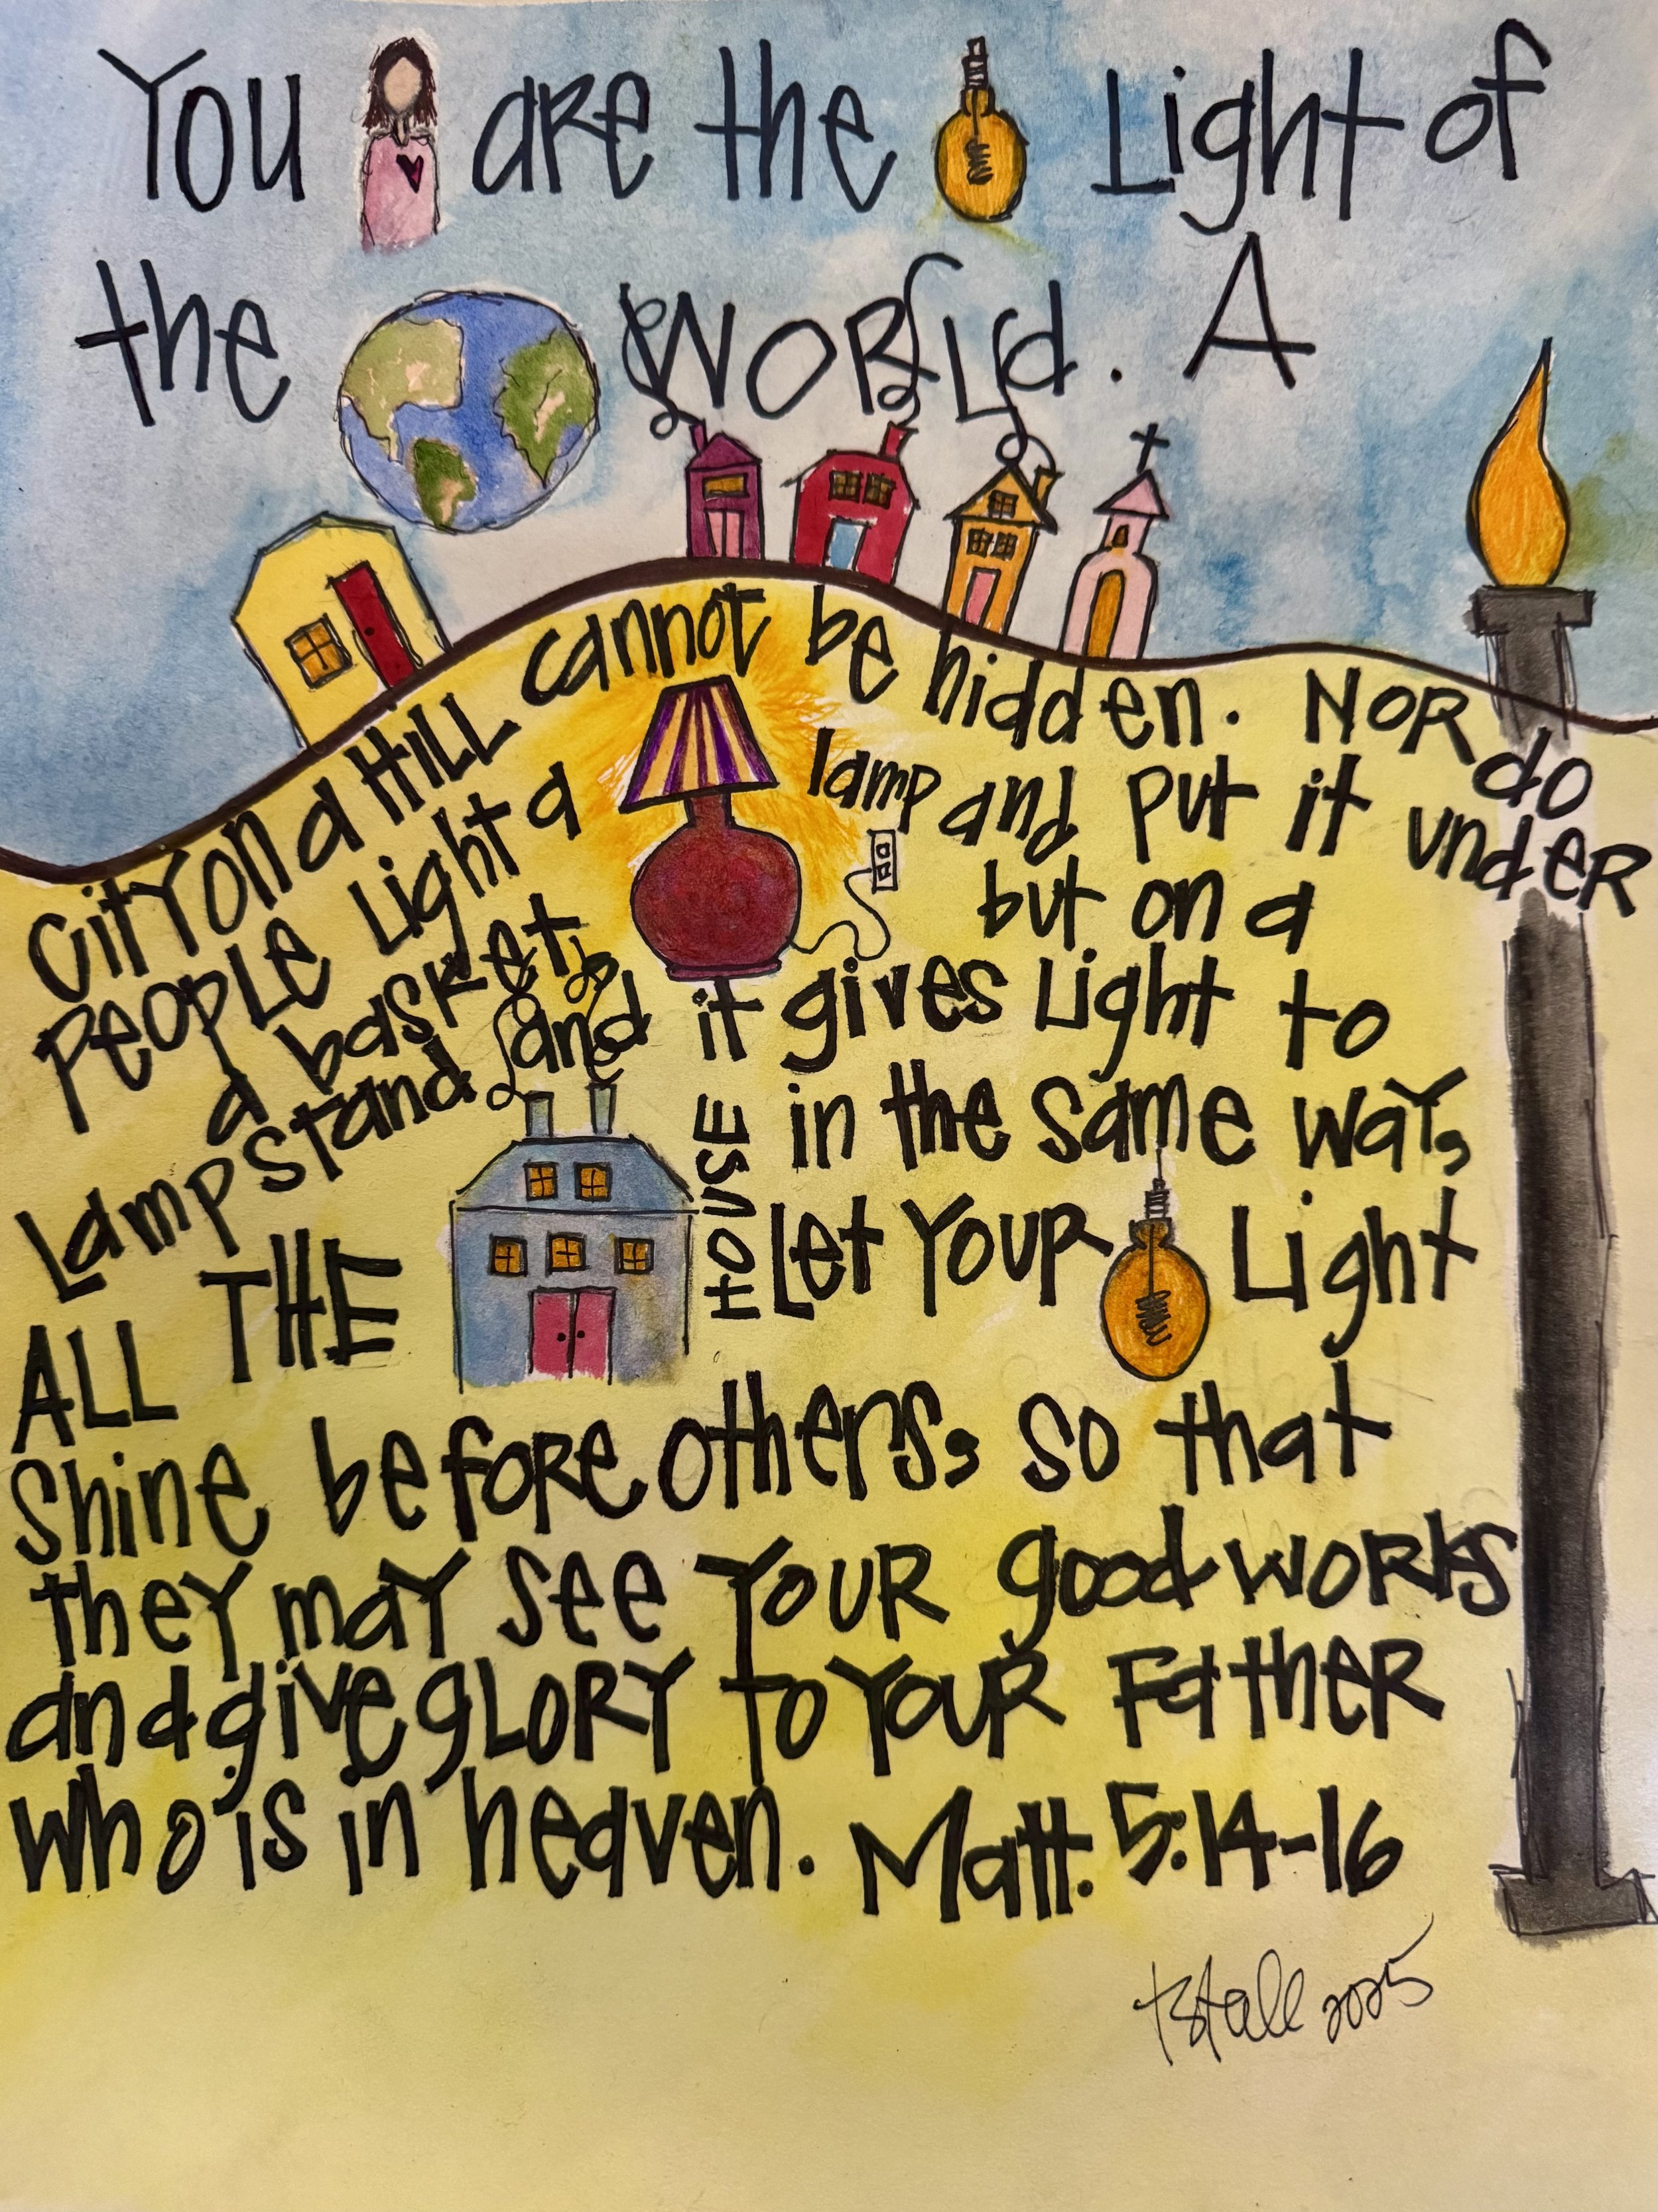 You are the Light of
the World. A
City on a Hill cannot be hidden. Nor do
People Light a lamp and put it under
a basket, but on a
Lamp stand and it gives Light to
ALL THE HOUSE in the same way,
Let Your Light
Shine before others, so that
they may see Your good works
and give glory to Your Father
who is in heaven. Matt. 5:14-16
2025